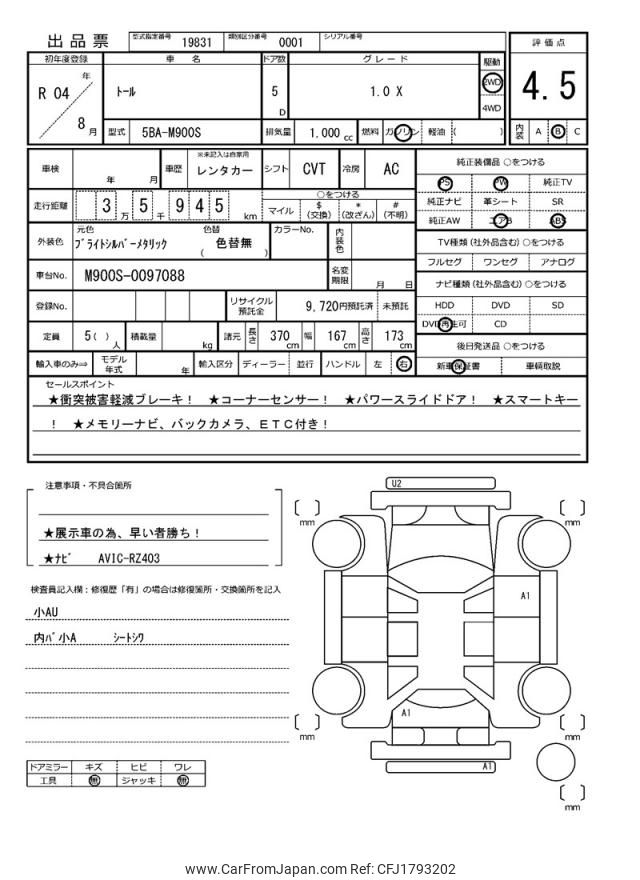 出品票
型式指定番号 19831 類別区分番号 0001 シリアル番号
評価点
4.5
内装 A B C
初年度登録 車名 ドア数 グレード 駆動
R 04 年 8 月
トール
5 D
1.0 X
2WD
4WD
型式 5BA-M900S 排気量 1.000 cc 燃料 ガソリン 軽油 ( )
車検 年 月 車歴 ※未記入は自家用 レンタカー シフト CVT 冷房 AC
走行距離 3 万 5 千 9 4 5 km
○をつける
マイル $(交換) *(改ざん) #(不明)
外装色 元色 ブライトシルバーメタリック 色替 ( 色替無 ) カラーNo. 内装色
車台No. M900S-0097088 名変期限 月 日
登録No. リサイクル預託金 9,720円預託済 未預託
定員 5( )人 積載量 kg 諸元 長さ 370 cm 幅 167 cm 高さ 173 cm
輸入車のみ⇨ モデル年式 年 輸入区分 ディーラー 並行 ハンドル 左 右
純正装備品 ○をつける
PS PW 純正TV
純正ナビ 革シート SR
純正AW エアB ABS
TV種類(社外品含む)○をつける
フルセグ ワンセグ アナログ
ナビ種類(社外品含む)○をつける
HDD DVD SD
DVD再生可 CD
後日発送品 ○をつける
新車保証書 車輌取説
セールスポイント
★衝突被害軽減ブレーキ! ★コーナーセンサー! ★パワースライドドア! ★スマートキー
! ★メモリーナビ、バックカメラ、ETC付き!
注意事項・不具合箇所
★展示車の為、早い者勝ち!
★ナビ AVIC-RZ403
検査員記入欄:修復歴「有」の場合は修復箇所・交換箇所を記入
小AU
内バ小A シートシワ
ドアミラー キズ ヒビ ワレ
工具 無 ジャッキ 無
U2
mm
mm
A1
A1
mm
mm
A1
mm
www.CarFromJapan.com Ref: CFJ1793202